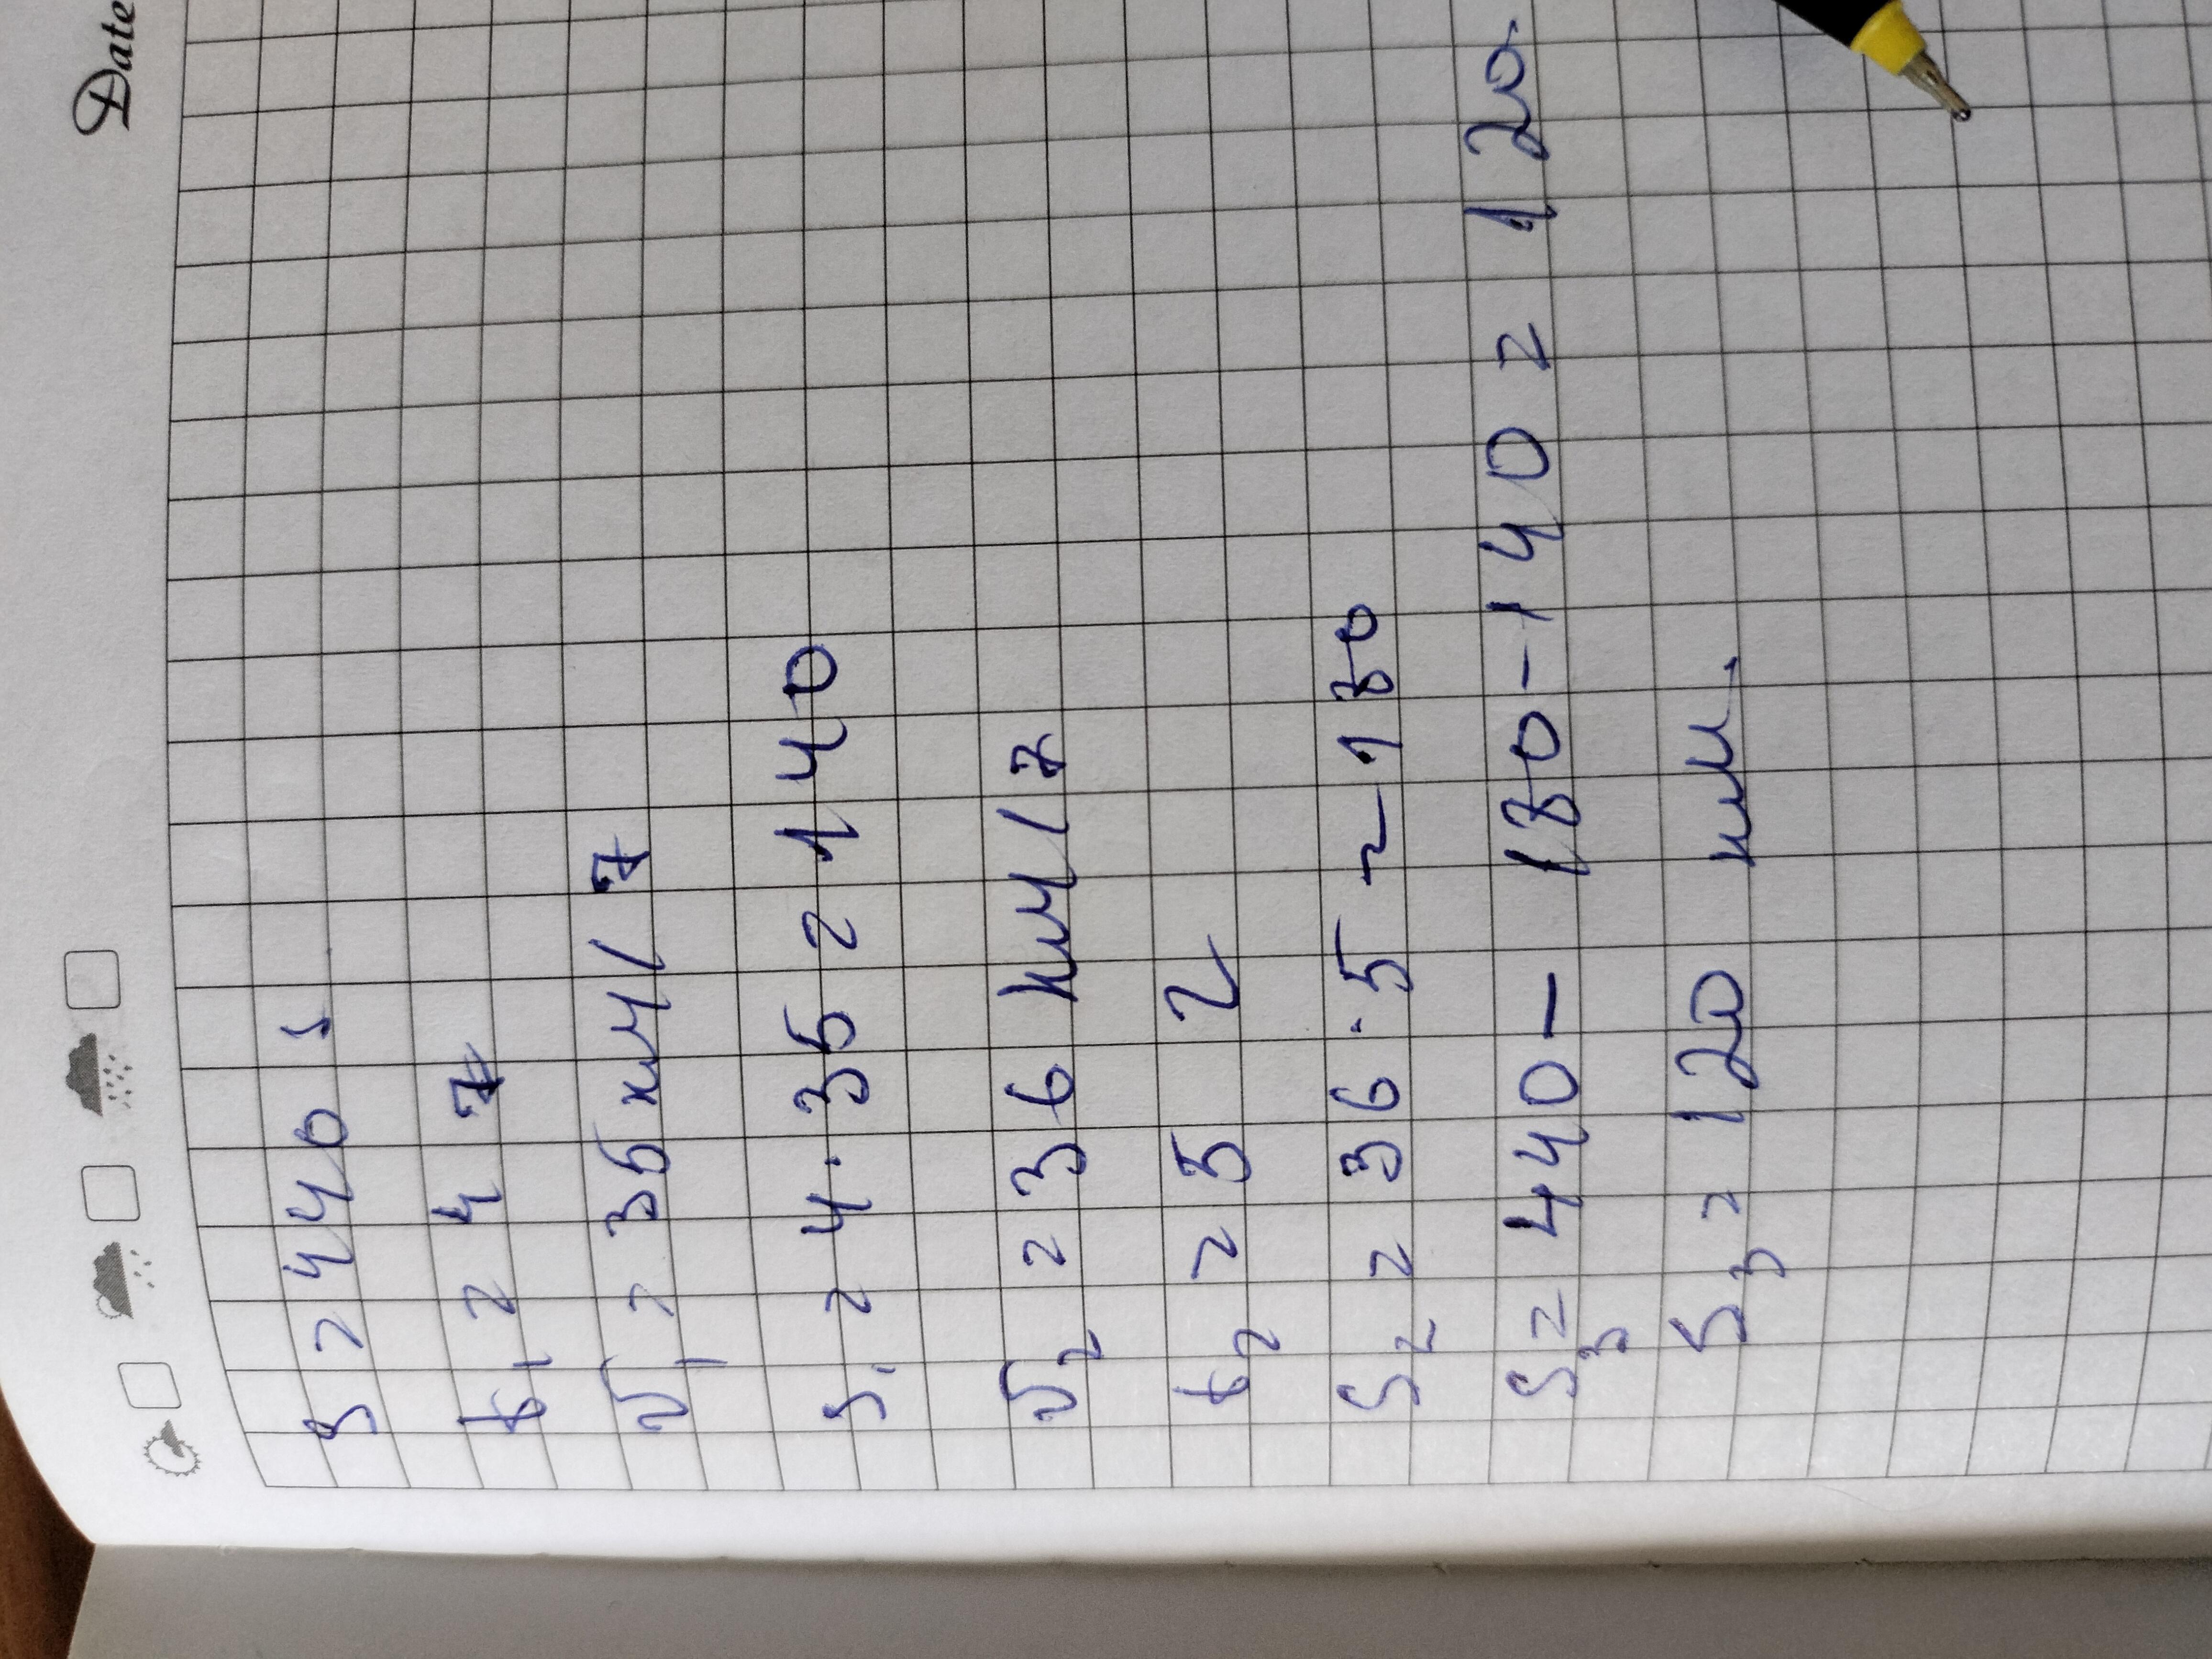 Date
S = 440 s
t₁ = 4 ч
v₁ = 35 км/ч
S₁ = 4 · 35 = 140
v₂ = 36 км/ч
t₂ = 5 ч
S₂ = 36 · 5 = 180
S₃ = 440 - 180 - 140 = 120
S₃ = 120 км.